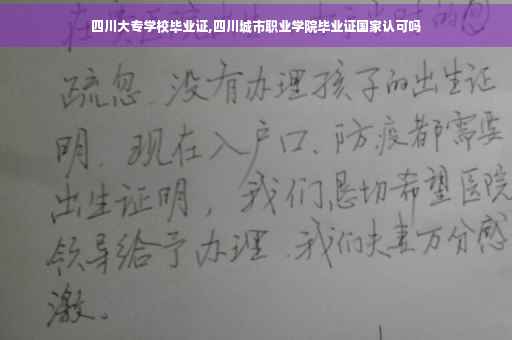 四川大专学校毕业证,四川城市职业学院毕业证国家认可吗
疏忽.没有办理孩子的出生证
明.现在入户口、防疫都需要
出生证明，我们恳切希望医院
领导给予办理.我们夫妻万分感
激。